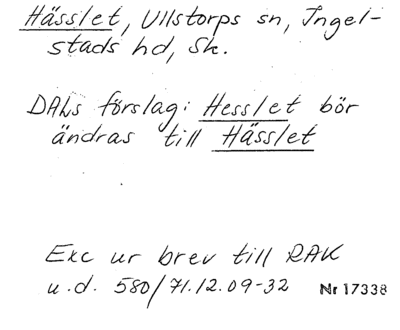 Hässlet, Ullstorps sn, Ingel-
stads hd, Sk.
DALs förslag: Hesslet bör
ändras till Hässlet
Exc ur brev till RAK
u.d. 580/71.12.09-32 Nr 17338